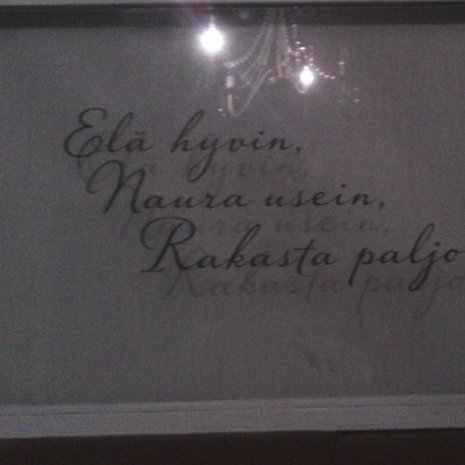 Elä hyvin,
Naura usein,
Rakasta paljo